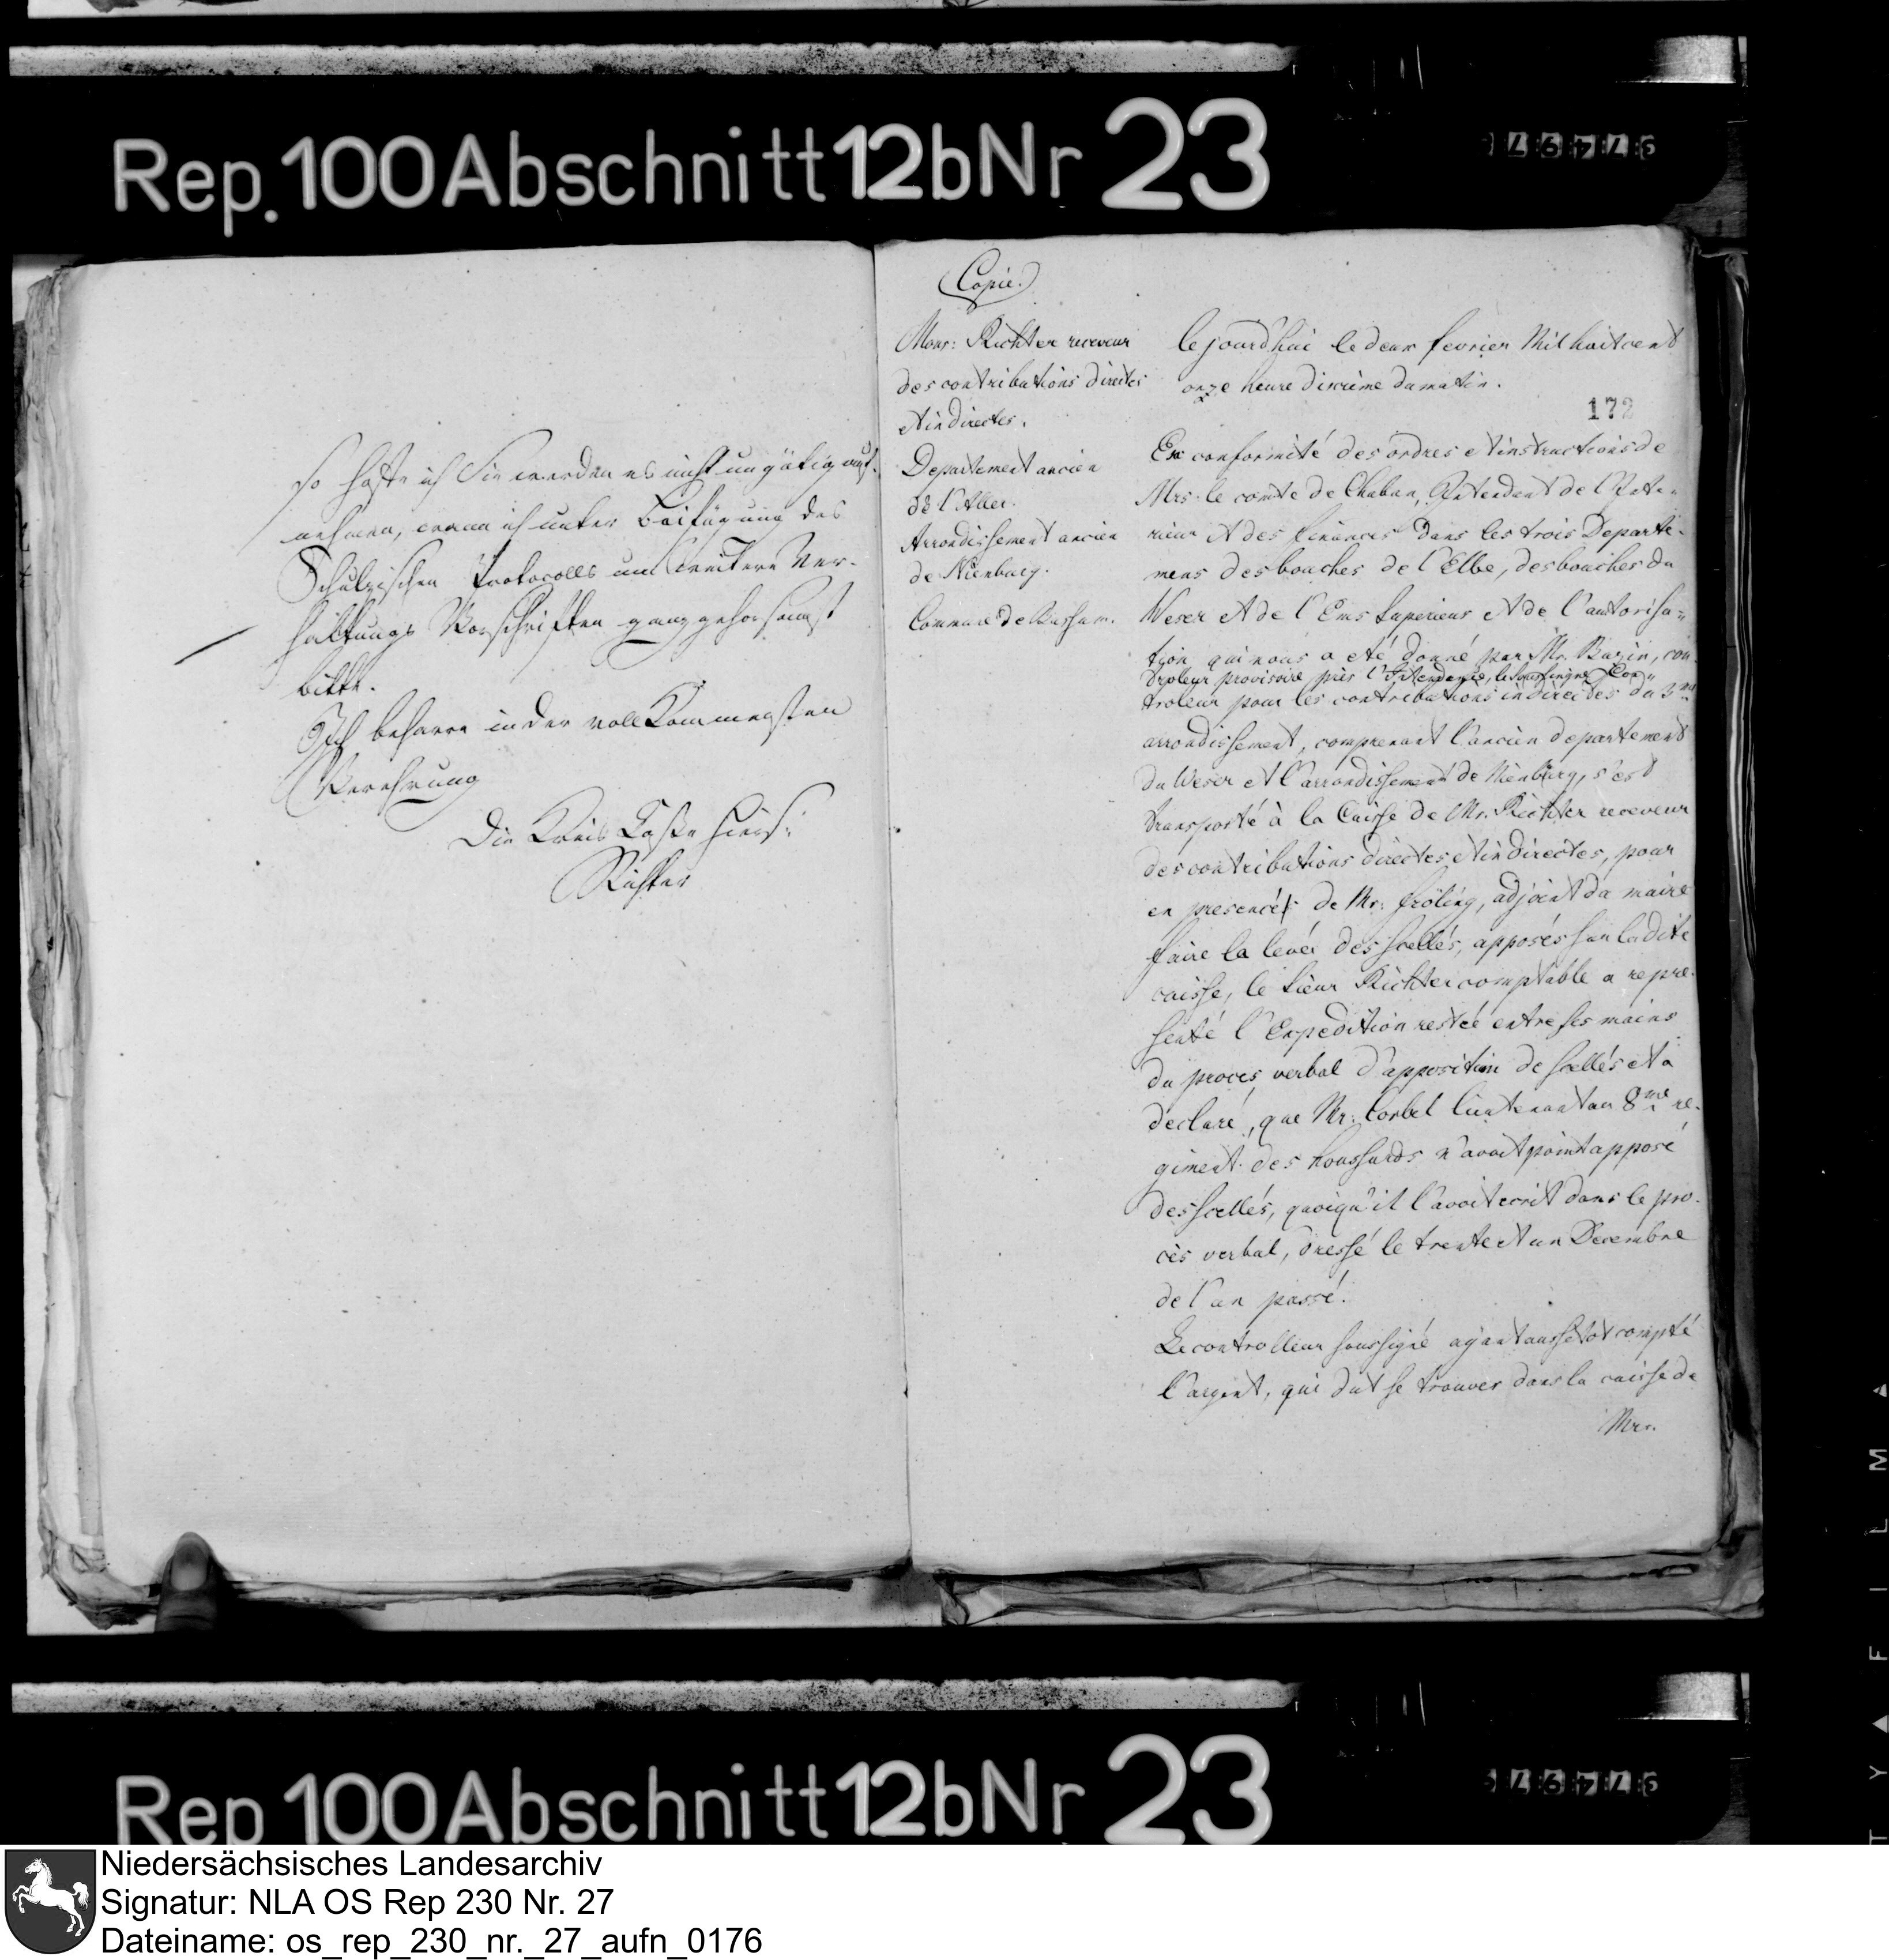 Rep. 100 Abschnitt 12b Nr 23
so hoffe ich Sie werden es nicht ungütig auf-
nehmen, wenn ich unter Beifügung des
Schulzischen Protocolls um weitere Ver-
haltungs Vorschriften ganz gehorsamst
bitte.
Ich beharre in der vollkommensten
Verehrung
Die Kreis Casse hies:
Richter
Copie.
Mons: Richter receveur
des contributions directes
et indirectes.
Departement ancien
de l'Aller.
Arrondissement ancien
de Nienburg.
Commune de Bassum.
le jourd'hui le deux fevrier Mil huit cent
onze heure dixieme du matin.
172
En conformité des ordres et instructions de
Mrs. le comte de Chaban, Intendant de l'Inte-
rieur et des finances dans les trois Departe-
mens des bouches de l'Elbe, des bouches du
Weser et de l'Ems Superieur et de l'autorisa-
tion qui nous a eté donné par Mr. Bazin, con-
troleur provisoire près l'Intendance, le soussigné Con-
troleur pour les contributions indirectes du 3me
arrondissement, comprenant l'ancien departement
du Weser et l'arrondissement de Nienburg, s'est
transporté à la Caisse de Mr. Richter receveur
des contributions directes et indirectes, pour
en presence de Mr. Fröling, adjoint du maire
faire la levée des scellés, apposés sur la dite
caisse, le Sieur Richter comptable a repre-
senté l'Expedition restée entre ses mains
du proces verbal d'apposition de scellés et a
declaré, que Mr. Corbel lieutenant au 8me re-
giment des houssards n'avoit point apposé
des scellés, quoiqu'il l'avoit ecrit dans le pro-
cès verbal, dressé le trente et un Decembre
de l'an passé.
Le controlleur soussigné ayant aussitot compté
l'argent, qui dut se trouver dans la caisse de
Mrs.
Rep 100 Abschnitt 12b Nr 23
Niedersächsisches Landesarchiv
Signatur: NLA OS Rep 230 Nr. 27
Dateiname: os_rep_230_nr._27_aufn_0176